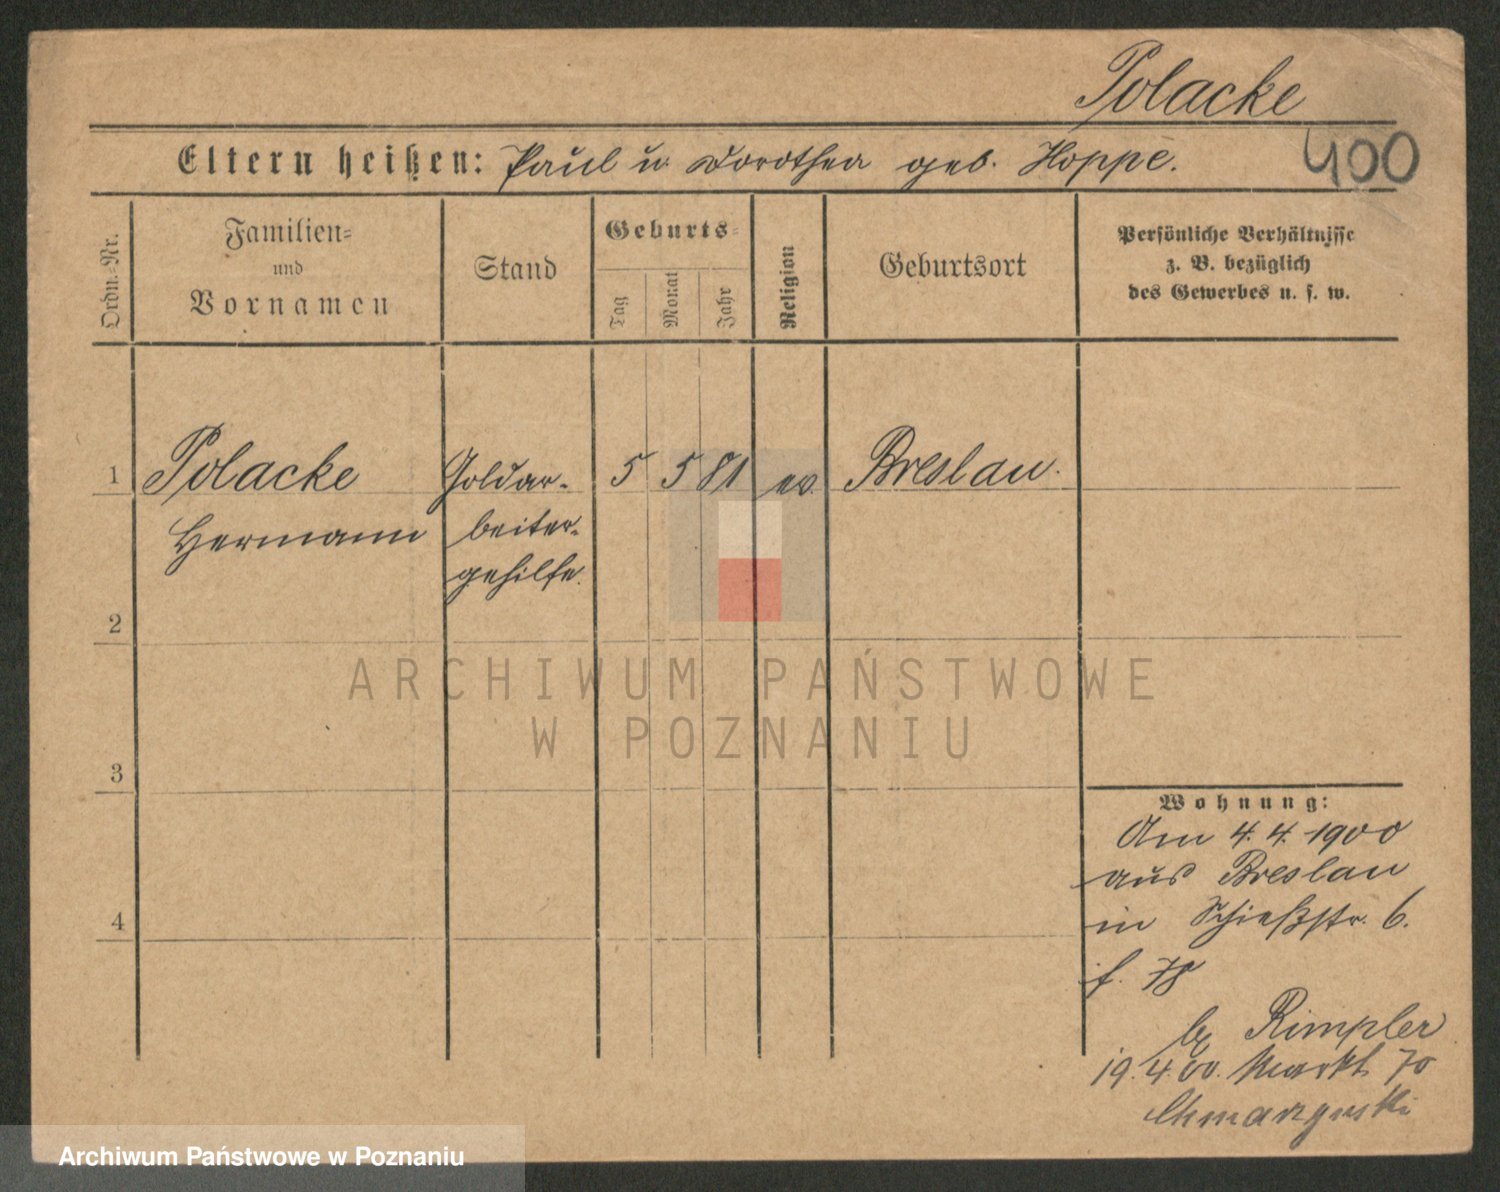 Polacke
400
Eltern heißen: Paul u. Dorothea geb. Hoppe.
Ordn.-Nr.
Familien-
und
Vornamen
Stand
Geburts-
Tag
Monat
Jahr
Religion
Geburtsort
Persönliche Verhältnisse
z. B. bezüglich
des Gewerbes u. s. w.
1 Polacke Goldar- 5 5 81 ev. Breslau.
Hermann beiter-
gehilfe.
2
ARCHIWUM PAŃSTWOWE
W POZNANIU
3
Wohnung:
Am 4. 4. 1900
aus Breslau
in Schießstr. 6.
4
f. 78
b/ Rimpler
19. 4. 00. Markt 70
Archiwum Państwowe w Poznaniu